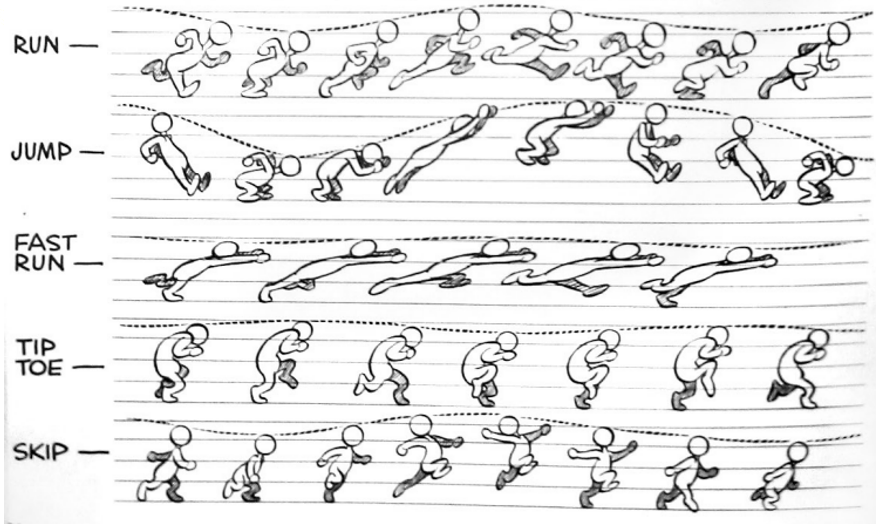 RUN —
JUMP —
FAST
RUN —
TIP
TOE —
SKIP —